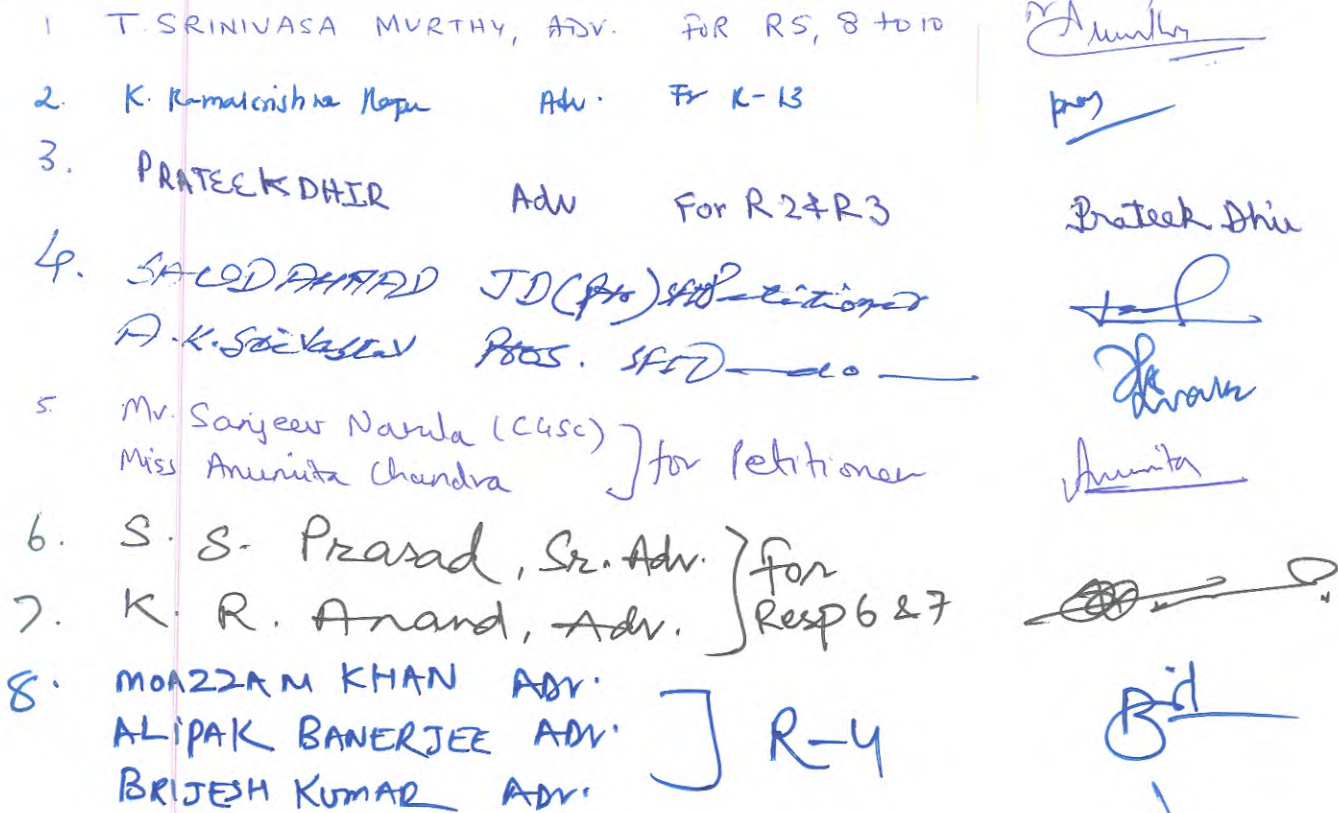 1 T. SRINIVASA MURTHY, ADV. FOR R5, 8 to 10
2. K. Ramakrishna Adv. Fr R-13
3. PRATEEK DHIR Adv For R2 & R3 Prateek Dhir
4. AHMAD JD (Pro) SFIO Petitioner
A. K. Srivastav Pros. SFIO — do —
5. Mr. Sanjeev Narula (CGSC)
Miss Anumita Chandra ] for Petitioner Anumita
6. S. S. Prasad, Sr. Adv.
7. K. R. Anand, Adv. ] for Resp 6 & 7
8. MOAZZAM KHAN ADV.
ALIPAK BANERJEE ADV. ] R-4
BRIJESH KUMAR ADV.